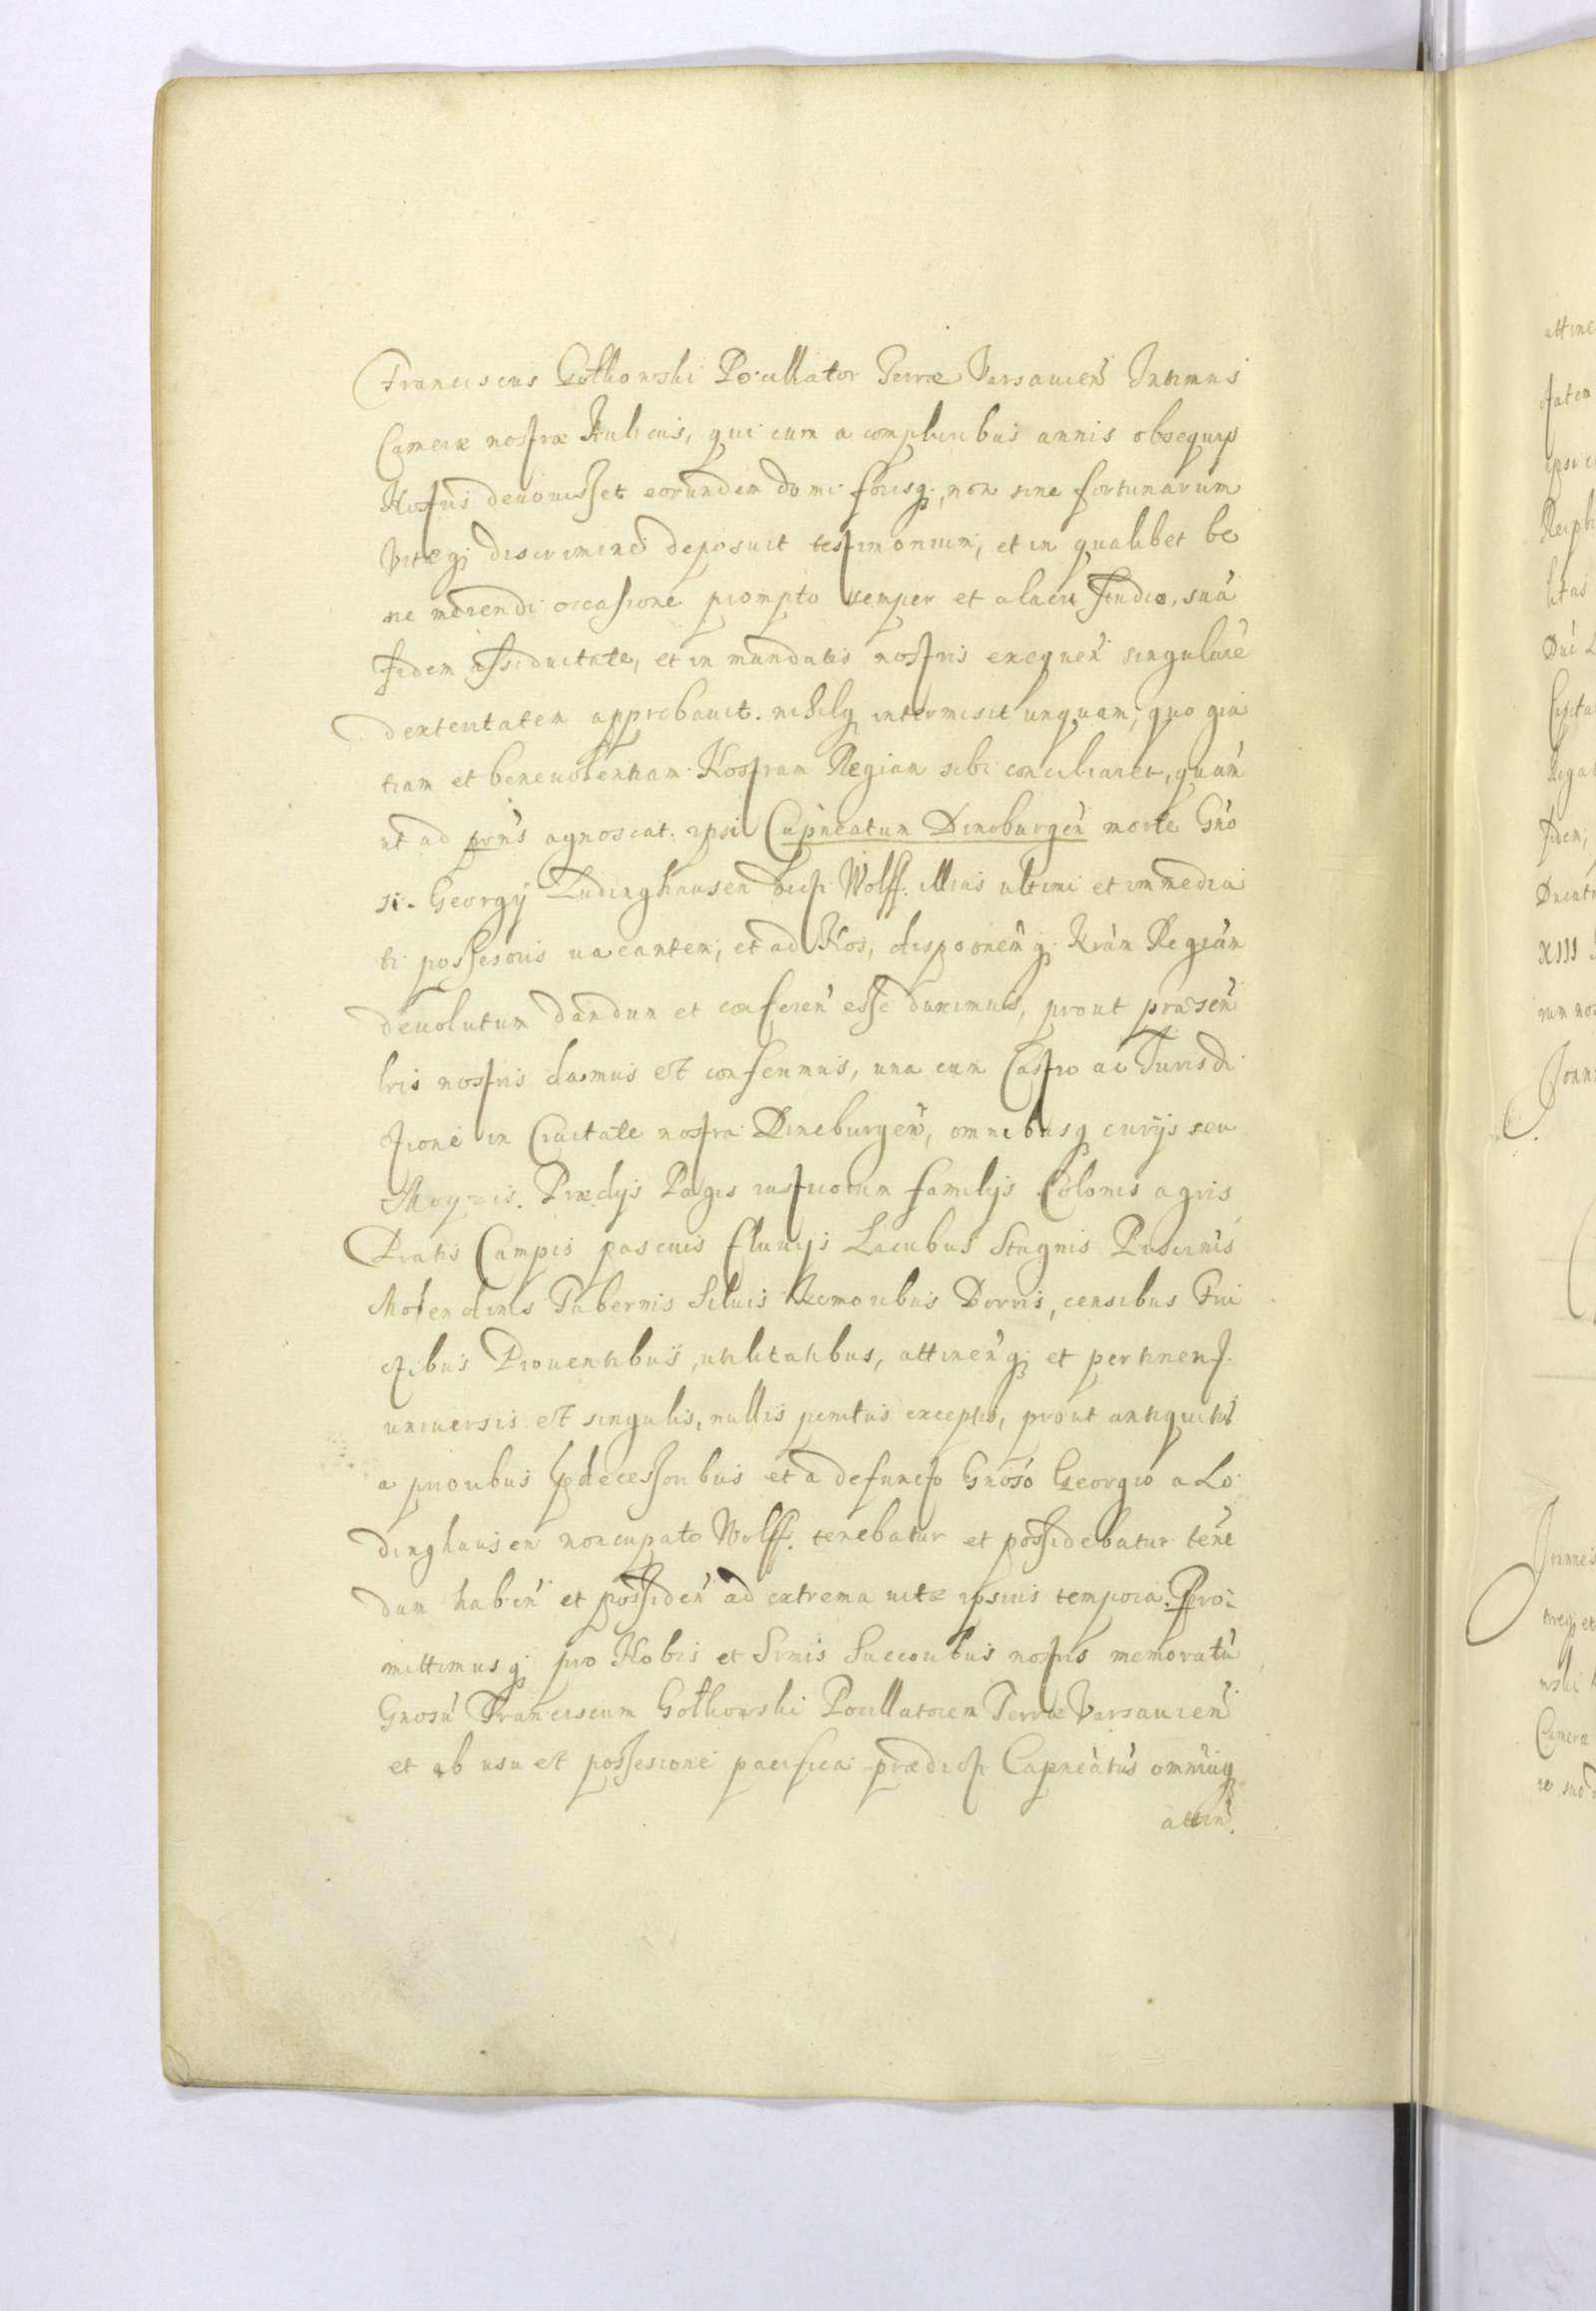 Franciscus Gotkowski Pocillator Terræ Varsauień Intimus
Cameræ nostræ Aulicus, qui cum a compluribus annis obsequys
Nostris deuouisset eorundem domi forisq; non sine fortunarum
Vitæq; discrimine deposuit testimonium, et in qualibet be
ne merendi occasione prompto semper et alacri studio, suã
fidem assiduitate, et in mandatis nostris exequeñ singularẽ
dexteritatem approbauit. nihilq intermisit unquam, quo gra
tiam et beneuolentiam Nostram Regiam sibi conciliaret, quam
ut ad prñs agnoscat. ipsi Capneatum Dineburgeñ morte Gño
si. Georgÿ Ludinghausen dicti Wolff. illius ultimi et immedia
ti possessoris uacantem, et ad Nos, disponemq; Nrãm Regiam
deuolutum dandum et confereñ esse duximus, prout præseñ
lris nostris damus et conferimus, una cum Castro ac Jurisdi
ctione in Ciuitate nostra Dineburgeñ, omnibusq curÿs seu
Moyzis. Prædÿs Pagis rusticorum familÿs Colonis agris
Pratis Campis pascuis fluuÿs Lacubus Stagnis Piscinis
Molendinis Tabernis Siluis Nemoribus Borris, censibus Fru
ctibus Prouentibus, utilitatibus, attineñq; et pertinent.
uniuersis et singulis, nullis penitus exceptis, prout antiquitus
a prioribus pdecessoribus et a defuncto Gnoso Georgio a Lo
dinghausen noncupato Wolff. tenebatur et possidebatur teneñ
dum habeñ et possideñ ad extrema uitæ ipsius tempora. Pro-
mittimusq; pro Nobis et Srmis Succoribus nostris memoratũ
Gnosũ Franciscum Gotkowski Pocillatorem Terræ Varsauień
et ab usu et possessione pacifica prædicti Capneatus omniuq
attiñ.